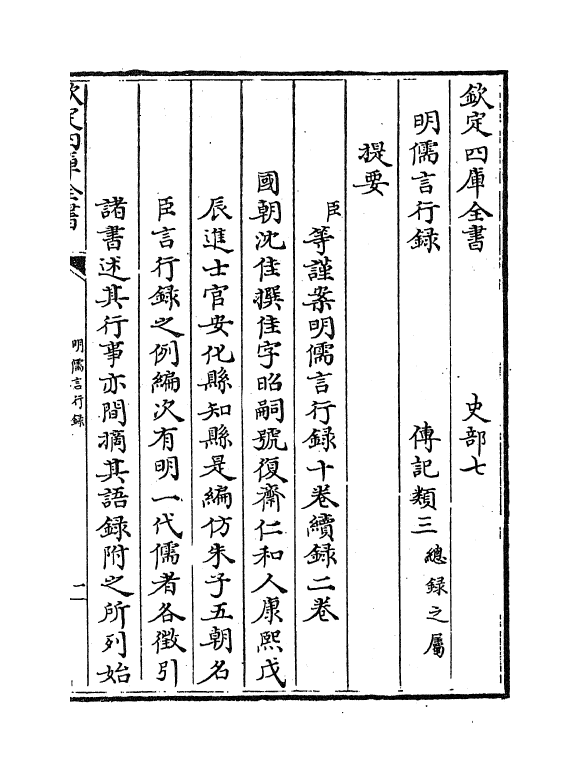 欽定四庫全書　　　　　史部七
明儒言行録　　　　傳記類三總録之屬
提要
臣等謹案明儒言行録十卷續録二卷
國朝沈佳撰佳字昭嗣號復齋仁和人康熙戊
辰進士官安化縣知縣是編仿朱子五朝名
臣言行録之例編次有明一代儒者各徴引
諸書述其行事亦間摘其語録附之所列始
欽定四庫全書
明儒言行録